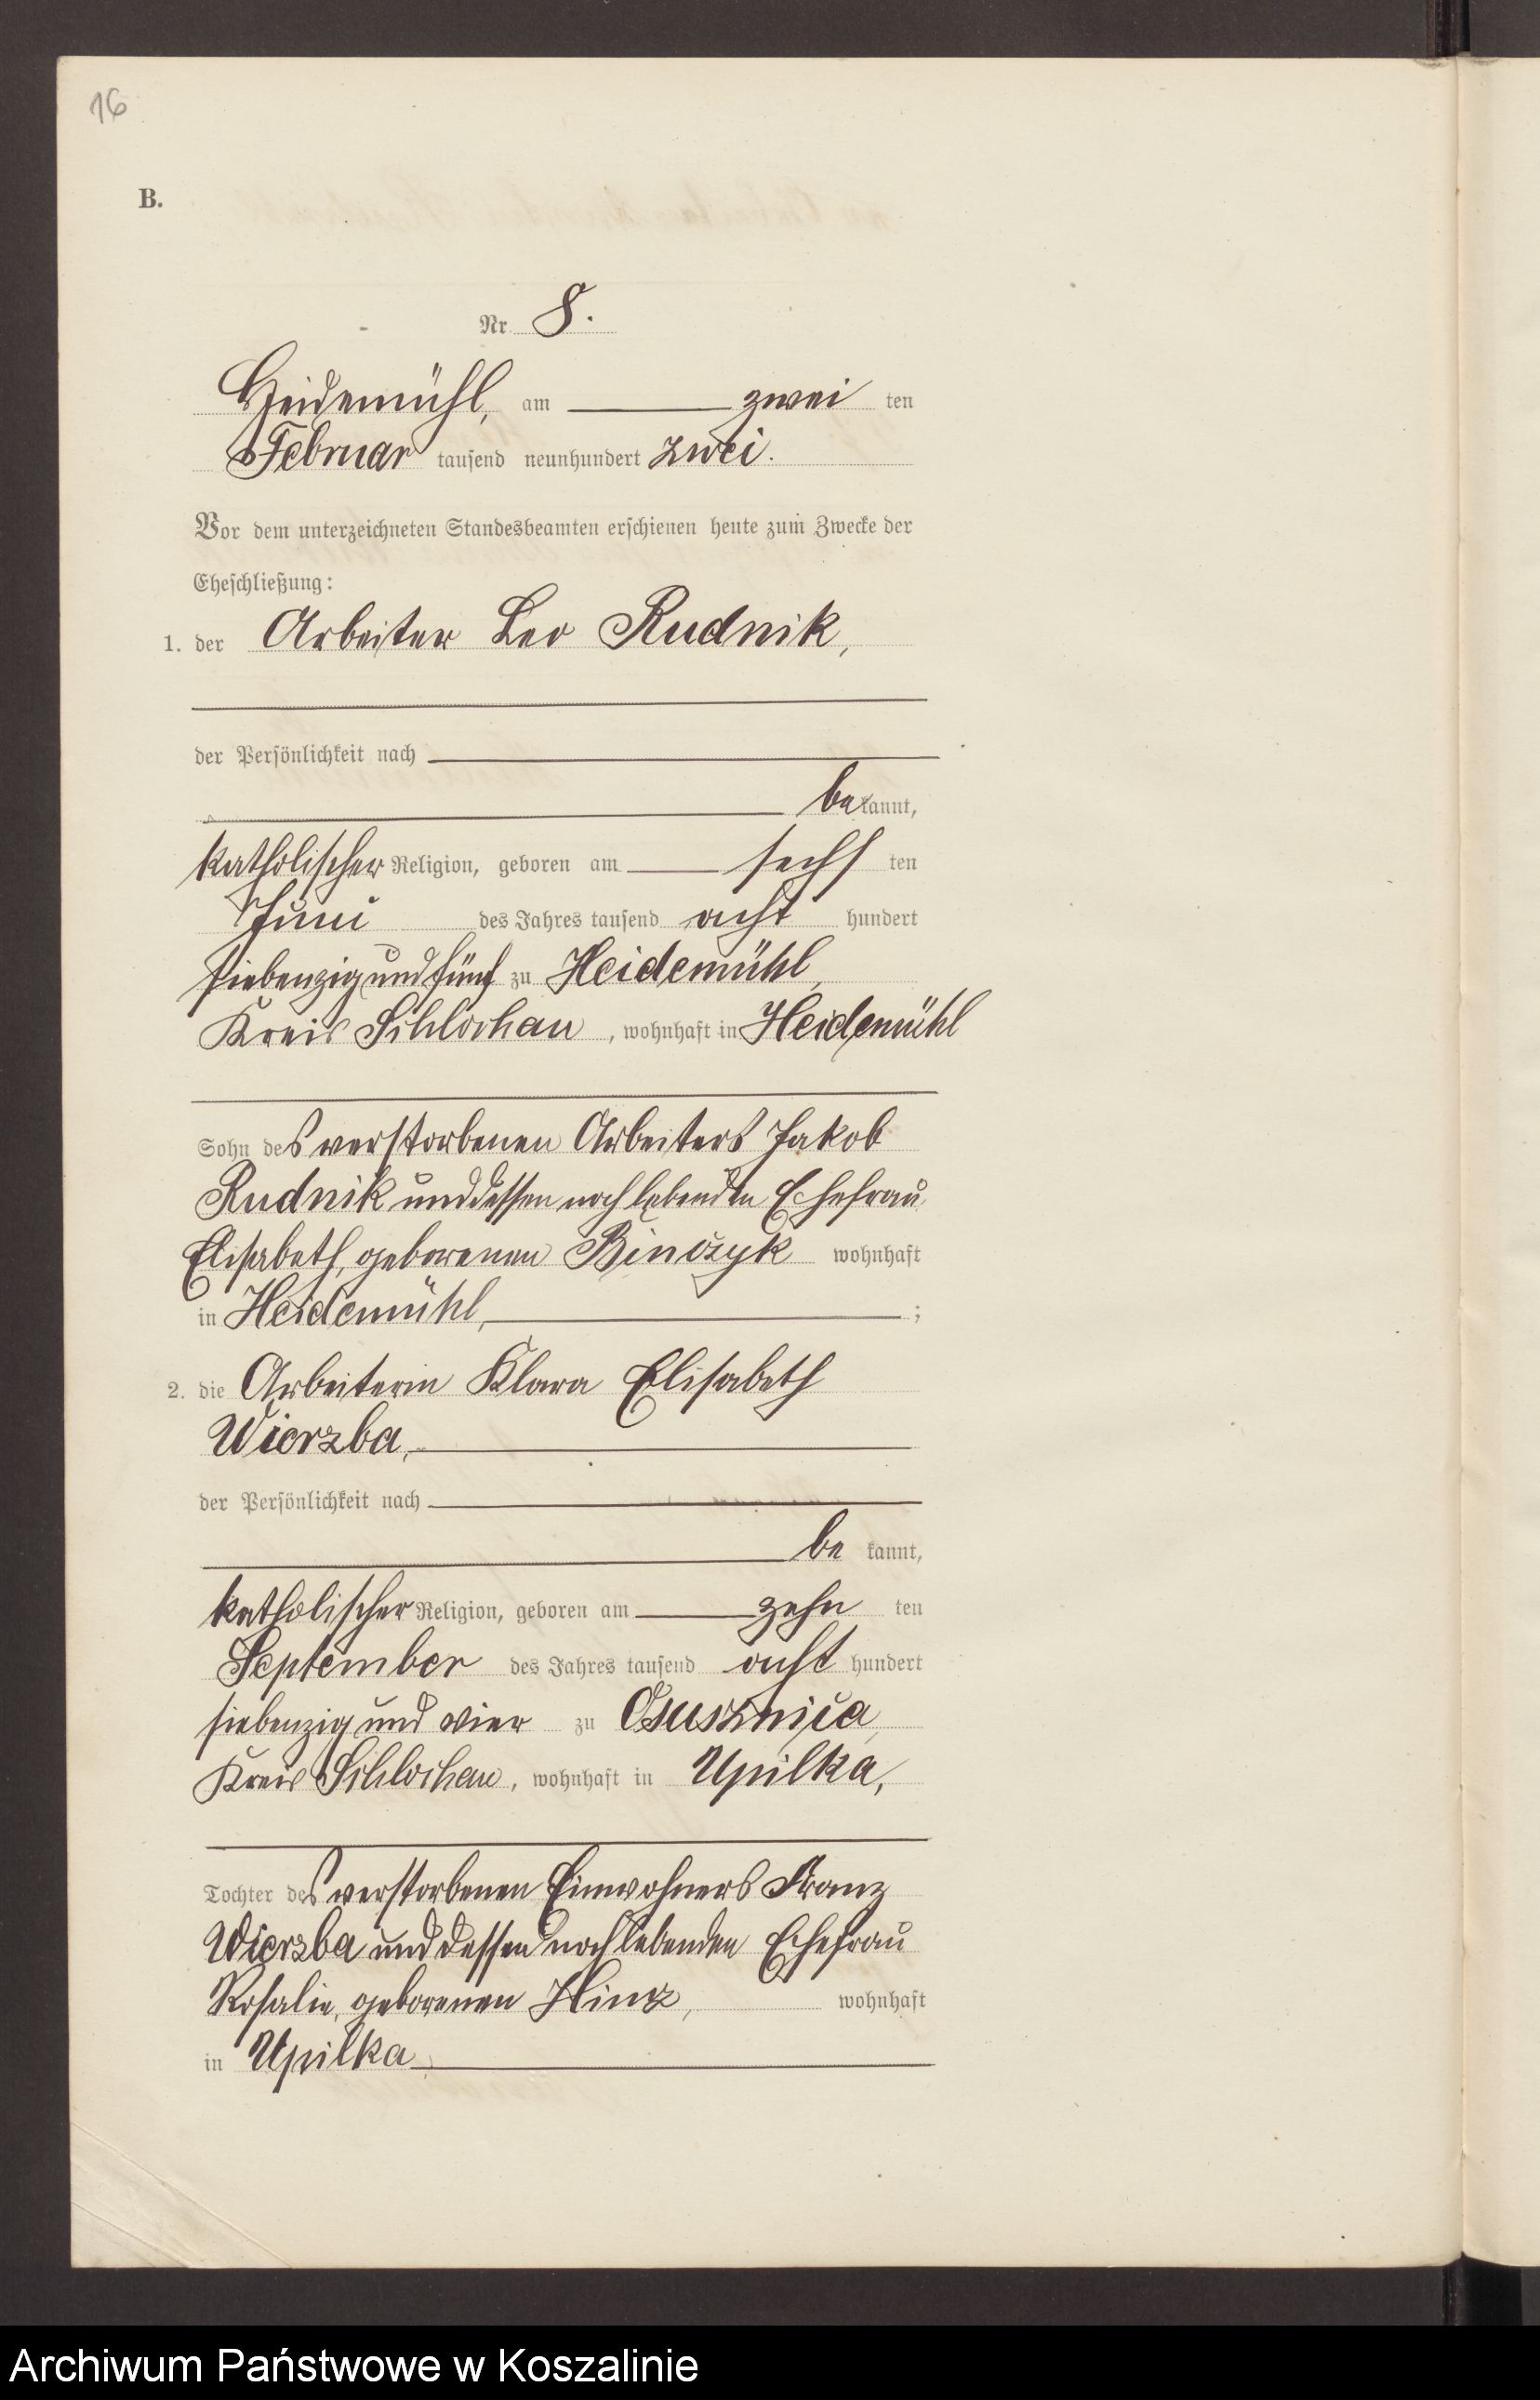 16
B.
Nr. 8.
Heidemühl, am zwei ten
Februar tausend neunhundert zwei.
Vor dem unterzeichneten Standesbeamten erschienen heute zum Zwecke der
Eheschließung:
1. der Arbeiter Leo Rudnik,
der Persönlichkeit nach
be kannt,
katholischer Religion, geboren am sechs ten
Juni des Jahres tausend acht hundert
siebenzig und fünf zu Heidemühl,
Kreis Schlochau, wohnhaft in Heidemühl
Sohn des verstorbenen Arbeiters Jakob
Rudnik und dessen noch lebenden Ehefrau
Elisabeth, geborenen Binczyk wohnhaft
in Heidemühl, ;
2. die Arbeiterin Klara Elisabeth
Wierzba,
der Persönlichkeit nach
be kannt,
katholischer Religion, geboren am zehn ten
September des Jahres tausend acht hundert
siebenzig und vier zu Osusznica,
Kreis Schlochau, wohnhaft in Upilka,
Tochter des verstorbenen Einwohners Franz
Wierzba und dessen noch lebenden Ehefrau
Rosalie, geborenen Hinz, wohnhaft
in Upilka
Archiwum Państwowe w Koszalinie